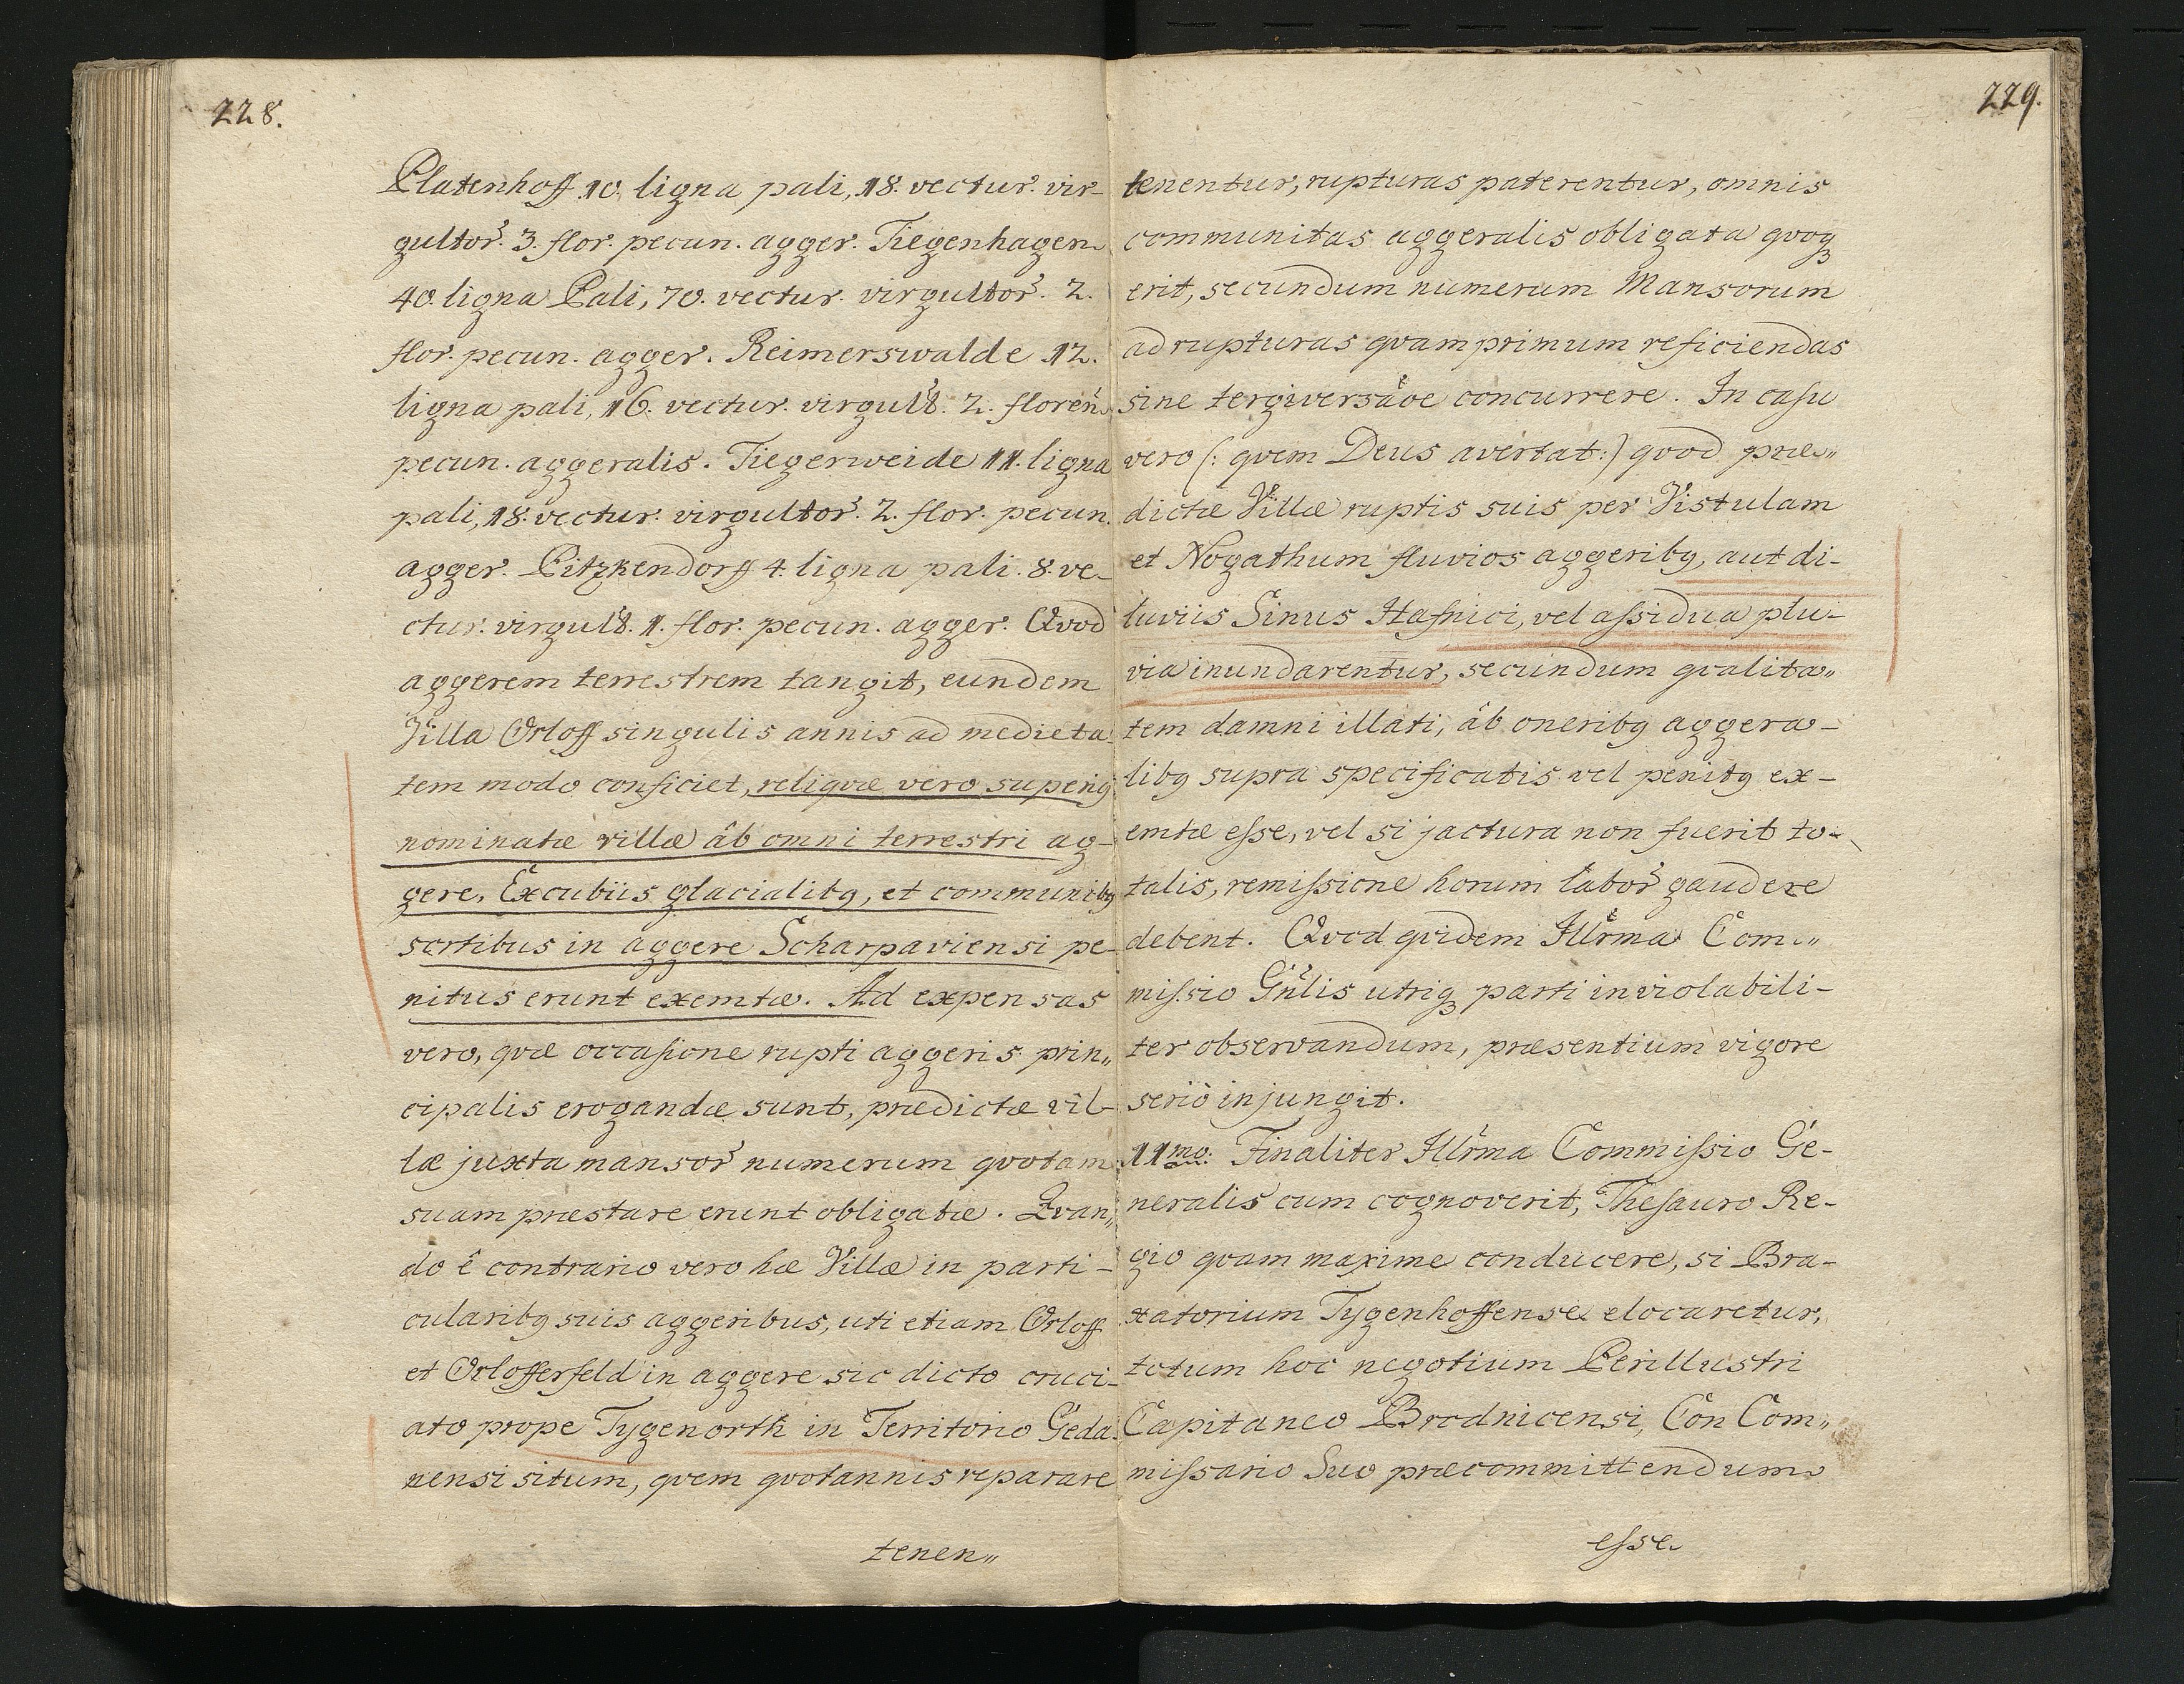 228.
Platenhoff 10. ligna pali, 18. vectur. vir-
gultor̃. 3. flor. pecun. agger. Tiegenhagen
40. ligna Pali, 70. vectur. virgultor̃. 2.
flor. pecun. agger. Reimerswalde 12.
ligna pali, 16. vectur. virgult̃. 2. floren̄.
pecun. aggeralis. Tiegerweide 11. ligna
pali, 18. vectur. virgultor̃. 2. flor. pecun.
agger. Pitzkendorff 4. ligna pali. 8. ve-
ctur. virgult̃. 1. flor. pecun. agger. Qvod
aggerem terrestrem tangit, eundem
Villa Orloff singulis annis ad medieta-
tem modo conficiet, reliqvæ vero superiq
nominatæ villæ âb omni terrestri ag-
gere, Excubiis glacialibq, et communibq
sortibus in aggere Scharpaviensi pe-
nitus erunt exemtæ. Ad expensas
vero, qvæ occaſione rupti aggeris prin„
cipalis erogandæ sunt, prædictæ vil-
læ juxta mansor̃ numerum qvotam
suam præstare erunt obligatæ. Qvan„
do ê contrario vero hæ Villæ in parti-
cularibq suis aggeribus, uti etiam Orloff
et Orlofferfeld in aggere sic dicto cruci-
ato prope Tygenorth in Territorio Geda-
nensi situm, qvem qvotannis reparare
tenen„
229.
tenentur, rupturas paterentur, omnis
communitas aggeralis obligata qvoqꝫ
erit, secundum numerum Mansorum
ad rupturas qvam primum reficiendas
sine tergiversãoe concurrere. In caſu
vero (: qvem Deus avertat :) qvod præ„
dictæ Villæ ruptis suis per Vistulam
et Nogathum fluvios aggeribq, aut di-
luviis Sinus Hafnici, vel aſsidua plu-
via inundarentur, secundum qvalita„
tem damni illati, âb oneribq aggera-
libq supra specificatis vel penitq ex-
emtæ eſse, vel si jactura non fuerit to-
talis, remiſsione horum labor̃ gaudere
debent. Qvod qvidem Illr̃ma Com„
miſsio Gñlis utriqꝫ parti inviolabili-
ter observandum, præsentium vigore
seriò injungit.
11mo. Finaliter Illr̃ma Commiſsio Ge-
neralis cum cognoverit, Theſauro Re-
gio qvam maxime conducere, si Bra-
xatorium Tygenhoffense elocaretur,
totum hoc negotium Perillustri
Capitaneo Brodnicensi, Con Com„
miſsario Suo præcommittendum
eſse